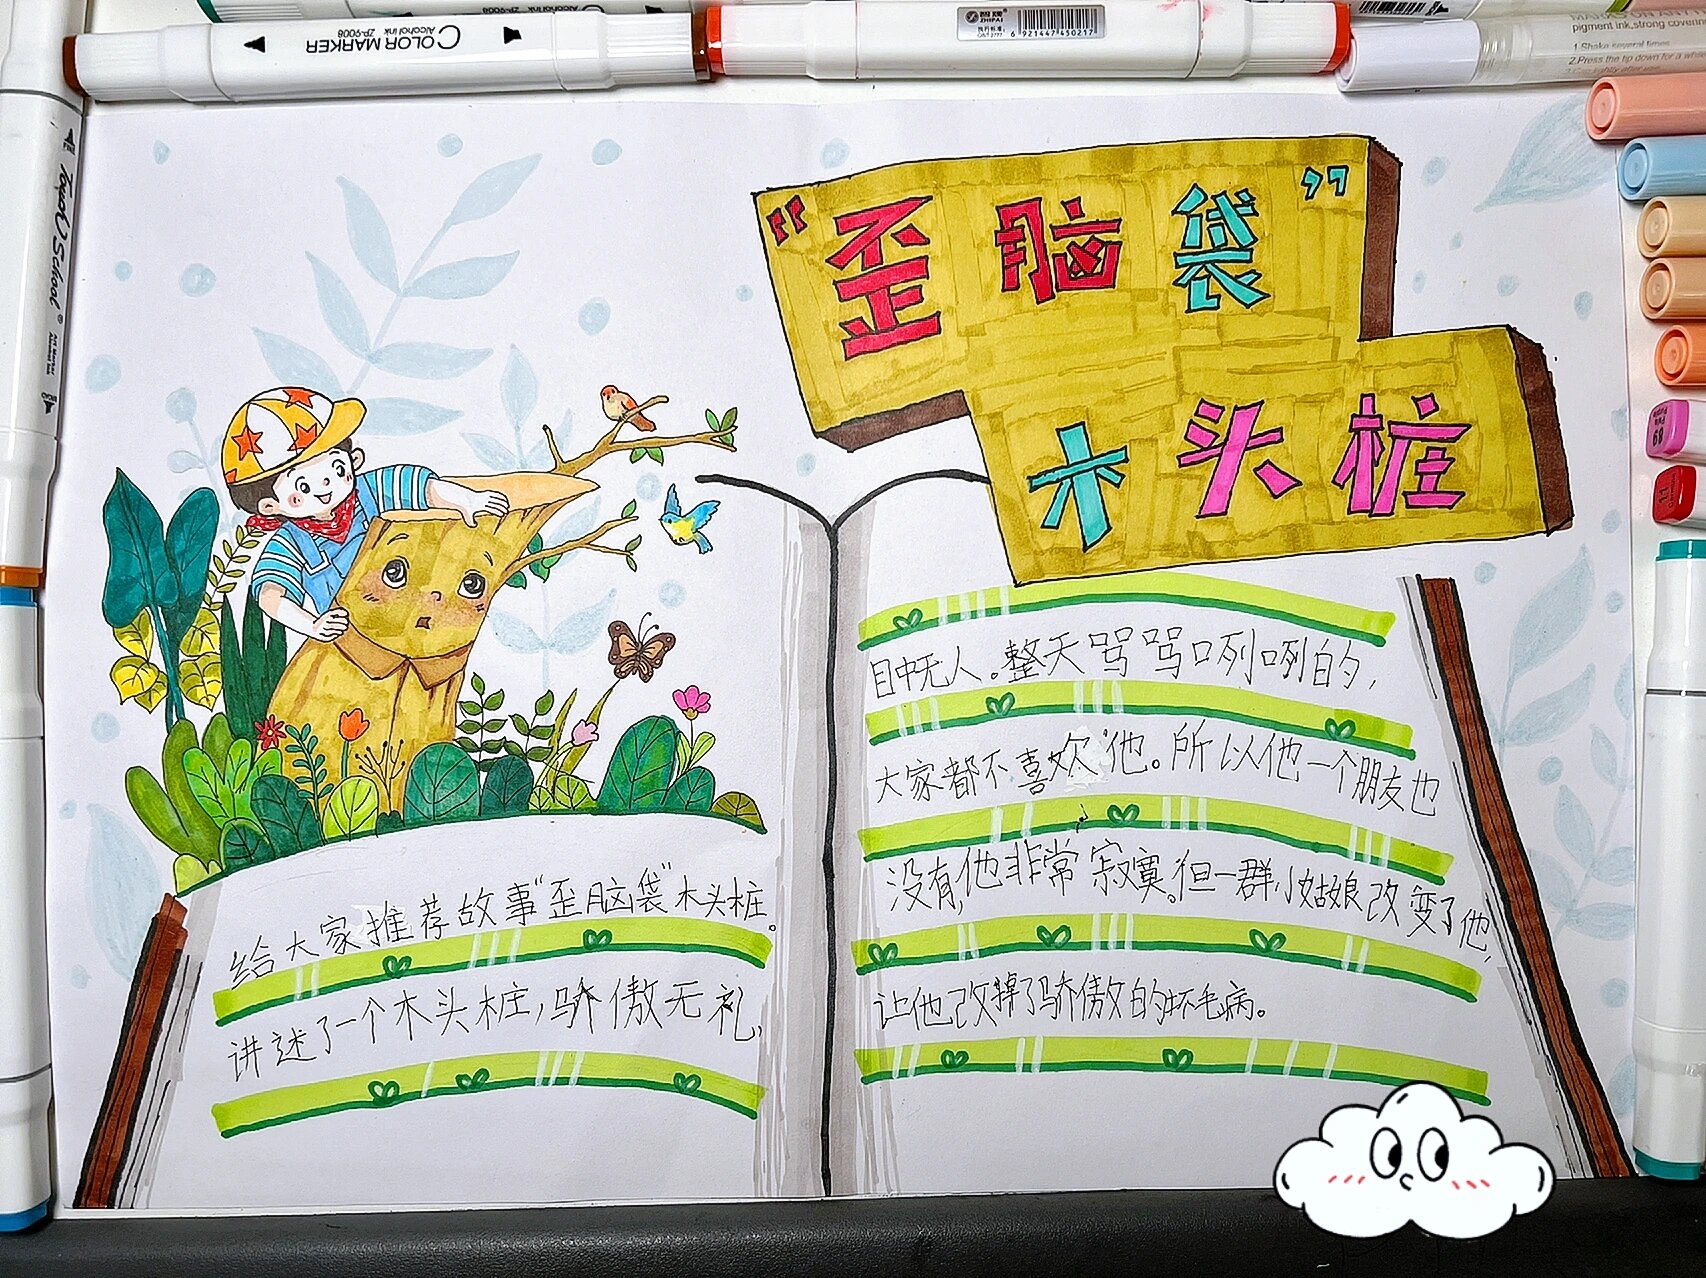 COLOR MARKER
Alcohol ink ZP-9008
智牌
ZHIPAI
6 921447 450217
pigment ink, strong
1.Shake several times
2.Press the tip down for a
Touch School
“歪脑袋”
木头桩
给大家推荐故事“歪脑袋”木头桩。
讲述了一个木头桩，骄傲无礼，
目中无人。整天骂骂咧咧的，
大家都不喜欢他。所以他一个朋友也
没有，他非常寂寞。但一群小姑娘改变了他，
让他改掉了骄傲的坏毛病。